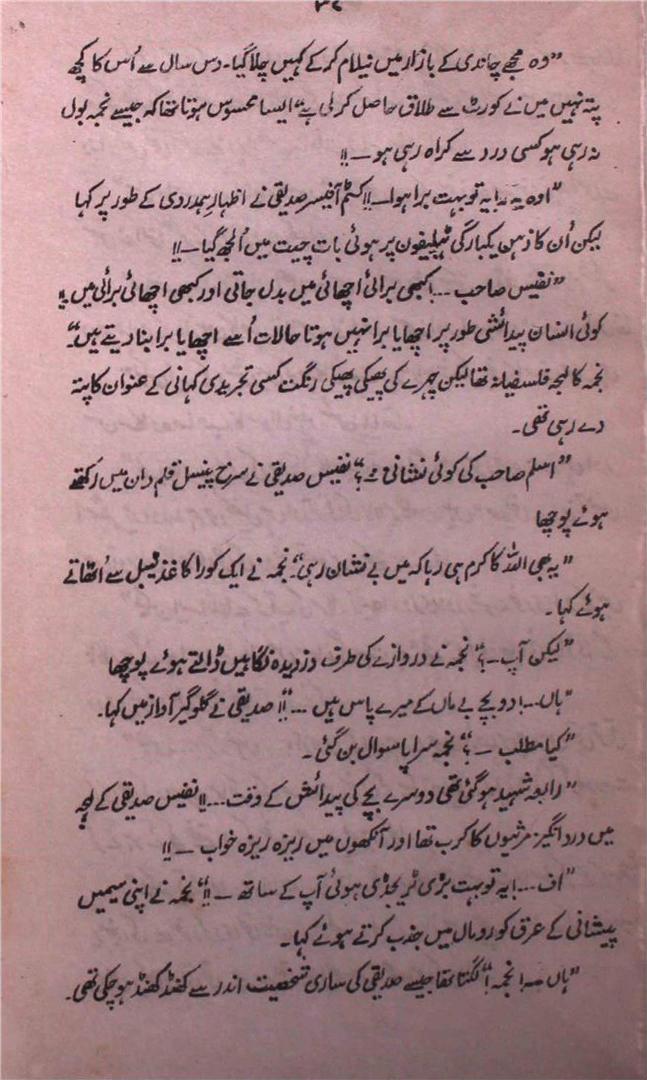 "وہ مجھے چاندی کے بازار میں نیلام کر کے کہیں چلا گیا۔ دس سال سے اُس کا کچھ
پتہ نہیں میں نے کورٹ سے طلاق حاصل کر لی ہے" ایسا محسوس ہوتا تھا کہ جیسے نجمہ بول
نہ رہی ہو کسی درد سے کراہ رہی ہو ــ!!
"اوہ یہ یہ یہ تو بہت برا ہوا ــ!! کسٹم آفیسر صدیقی نے اظہارِ ہمدردی کے طور پر کہا
لیکن اُن کا ذہن یکبارگی ٹیلیفون پر ہوئی بات چیت میں اُلجھ گیا ــ!!
"نفیس صاحب ...! کبھی برائی اچھائی میں بدل جاتی اور کبھی اچھائی برائی میں !!
کوئی انسان پیدائشی طور پر اچھا یا برا نہیں ہوتا حالات اُسے اچھا یا برا بنا دیتے ہیں"۔
نجمہ کا لہجہ فلسفیانہ تھا لیکن چہرے کی پھیکی پھیکی رنگت کسی تجریدی کہانی کے عنوان کا پتہ
دے رہی تھی۔
"اسلم صاحب کی کوئی نشانی ــ؟" نفیس صدیقی نے سرخ پنسل قلم دان میں رکھتے
ہوئے پوچھا
"یہ بھی اللہ کا کرم ہی رہا کہ میں بے نشان رہی"۔ نجمہ نے ایک کورا کاغذ ٹیبل سے اُٹھاتے
ہوئے کہا۔
"لیکن آپ ــ؟" نجمہ نے دروازے کی طرف دزدیدہ نگاہیں ڈالتے ہوئے پوچھا
"ہاں ...! دو بچے بے ماں کے میرے پاس ہیں ..."!! صدیقی نے گلوگیر آواز میں کہا۔
"کیا مطلب ــ؟" نجمہ سراپا سوال بن گئی۔
"رابعہ شہید ہو گئی تھی دوسرے بچے کی پیدائش کے وقت ...!! نفیس صدیقی کے لہجہ
میں درد انگیز مرثیوں کا کرب تھا اور آنکھوں میں ریزہ ریزہ خواب ــ!!
"اف ...! یہ تو بہت بڑی ٹریجڈی ہوئی آپ کے ساتھ ــ!!" نجمہ نے اپنی سیمیں
پیشانی کے عرق کو رومال میں جذب کرتے ہوئے کہا۔
"ہاں ــ! نجمہ!" لگتا تھا جیسے صدیقی کی ساری شخصیت اندر سے کھنڈ کھنڈ ہو چکی تھی۔